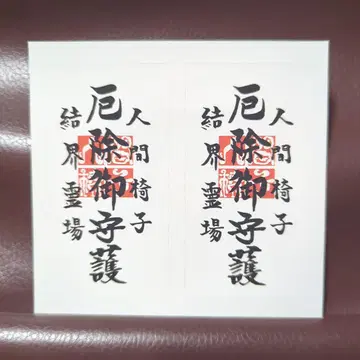 人間椅子
厄除御守護
結界霊場
人間椅子
厄除御守護
結界霊場